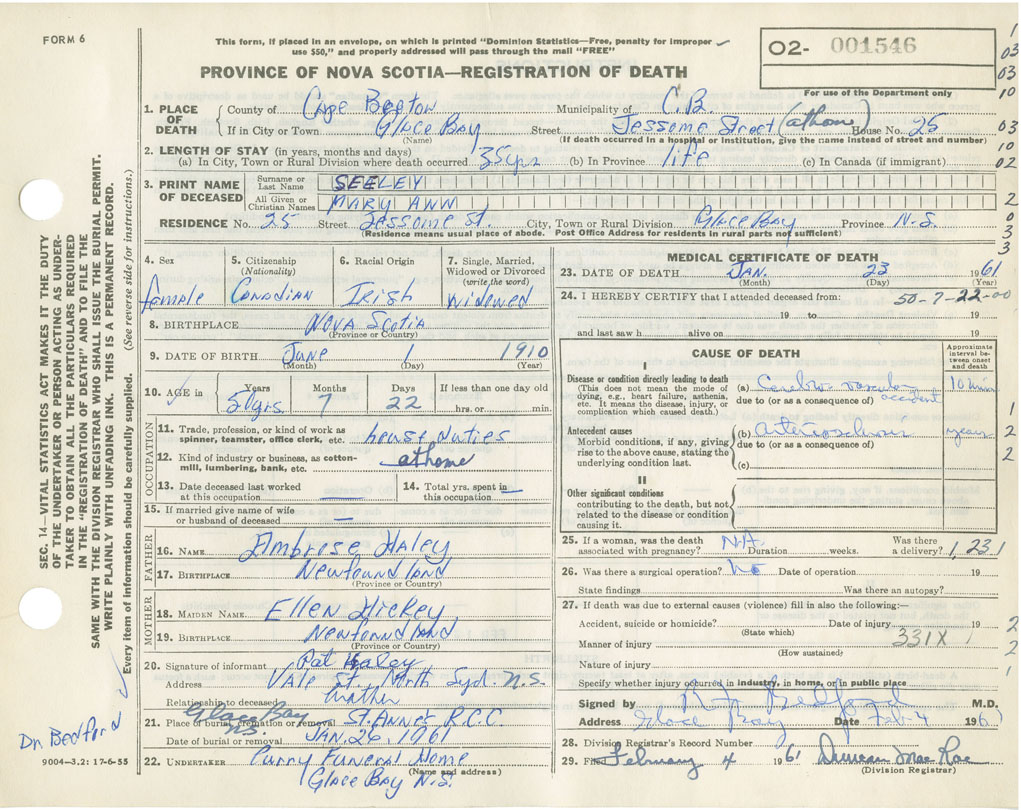 FORM 6
This form, if placed in an envelope, on which is printed "Dominion Statistics—Free, penalty for improper
use $50," and properly addressed will pass through the mail "FREE"
O2- 001546
For use of the Department only
PROVINCE OF NOVA SCOTIA—REGISTRATION OF DEATH
1. PLACE OF DEATH
County of Cape Breton Municipality of C.B.
If in City or Town Glace Bay Street Jessome Street (at home) House No. 25
(Name) (If death occurred in a hospital or institution, give the name instead of street and number)
2. LENGTH OF STAY (in years, months and days)
(a) In City, Town or Rural Division where death occurred 35 yrs (b) In Province life (c) In Canada (if immigrant)
3. PRINT NAME OF DECEASED
Surname or Last Name SEELEY
All Given or Christian Names MARY ANN
RESIDENCE No. 25 Street Jessome St. City, Town or Rural Division Glace Bay Province N.S.
(Residence means usual place of abode. Post Office Address for residents in rural parts not sufficient)
4. Sex female
5. Citizenship (Nationality) Canadian
6. Racial Origin Irish
7. Single, Married, Widowed or Divorced (write the word) widowed
8. BIRTHPLACE Nova Scotia
(Province or Country)
9. DATE OF BIRTH June 1 1910
(Month) (Day) (Year)
10. AGE in Years Months Days If less than one day old
50 yrs. 7 22 hrs. or min.
OCCUPATION
11. Trade, profession, or kind of work as spinner, teamster, office clerk, etc. house duties
12. Kind of industry or business, as cotton-mill, lumbering, bank, etc. at home
13. Date deceased last worked at this occupation —
14. Total yrs. spent in this occupation —
15. If married give name of wife or husband of deceased —
FATHER
16. NAME Ambrose Haley
17. BIRTHPLACE Newfoundland
(Province or Country)
MOTHER
18. MAIDEN NAME Ellen Hickey
19. BIRTHPLACE Newfoundland
(Province or Country)
20. Signature of informant Pat Haley
Address Vale St. North Syd. N.S.
Relationship to deceased
21. Place of burial, cremation or removal Glace Bay N.S. St. Anne's R.C.C.
Date of burial or removal JAN. 26, 1961
22. UNDERTAKER Curry Funeral Home
(Name and address)
Glace Bay N.S.
MEDICAL CERTIFICATE OF DEATH
23. DATE OF DEATH Jan. 23 1961
(Month) (Day) (Year)
24. I HEREBY CERTIFY that I attended deceased from: 50-7-22-00
19 to 19
and last saw h alive on 19
CAUSE OF DEATH
Approximate interval between onset and death
I
Disease or condition directly leading to death
(This does not mean the mode of dying, e.g., heart failure, asthenia, etc. It means the disease, injury, or complication which caused death.)
(a) Cerebro vascular accident 10 min
due to (or as a consequence of)
Antecedent causes
Morbid conditions, if any, giving rise to the above cause, stating the underlying condition last.
(b) years
due to (or as a consequence of)
(c)
II
Other significant conditions
contributing to the death, but not related to the disease or condition causing it.
25. If a woman, was the death associated with pregnancy? N.A. Duration weeks. Was there a delivery? 1,231
26. Was there a surgical operation? No Date of operation 19
State findings Was there an autopsy?
27. If death was due to external causes (violence) fill in also the following:—
Accident, suicide or homicide? Date of injury 19
(State which)
Manner of injury 331X
(How sustained)
Nature of injury
Specify whether injury occurred in industry, in home, or in public place
Signed by Bedford M.D.
Address Glace Bay Date Feb 4 196
28. Division Registrar's Record Number
29. Filed February 4 1961 Duncan MacRae
(Division Registrar)
SEC. 14—VITAL STATISTICS ACT MAKES IT THE DUTY
OF THE UNDERTAKER OR PERSON ACTING AS UNDER-
TAKER TO OBTAIN ALL THE PARTICULARS REQUIRED
IN THE "REGISTRATION OF DEATH" AND TO FILE THE
SAME WITH THE DIVISION REGISTRAR WHO SHALL ISSUE THE BURIAL PERMIT.
WRITE PLAINLY WITH UNFADING INK. THIS IS A PERMANENT RECORD.
Every item of information should be carefully supplied. (See reverse side for instructions.)
Dr. Bedford
9004—3.2: 17-6-55
1
03
03
10
03
10
02
2
0
3
3
1
2
2
1
2
2
1